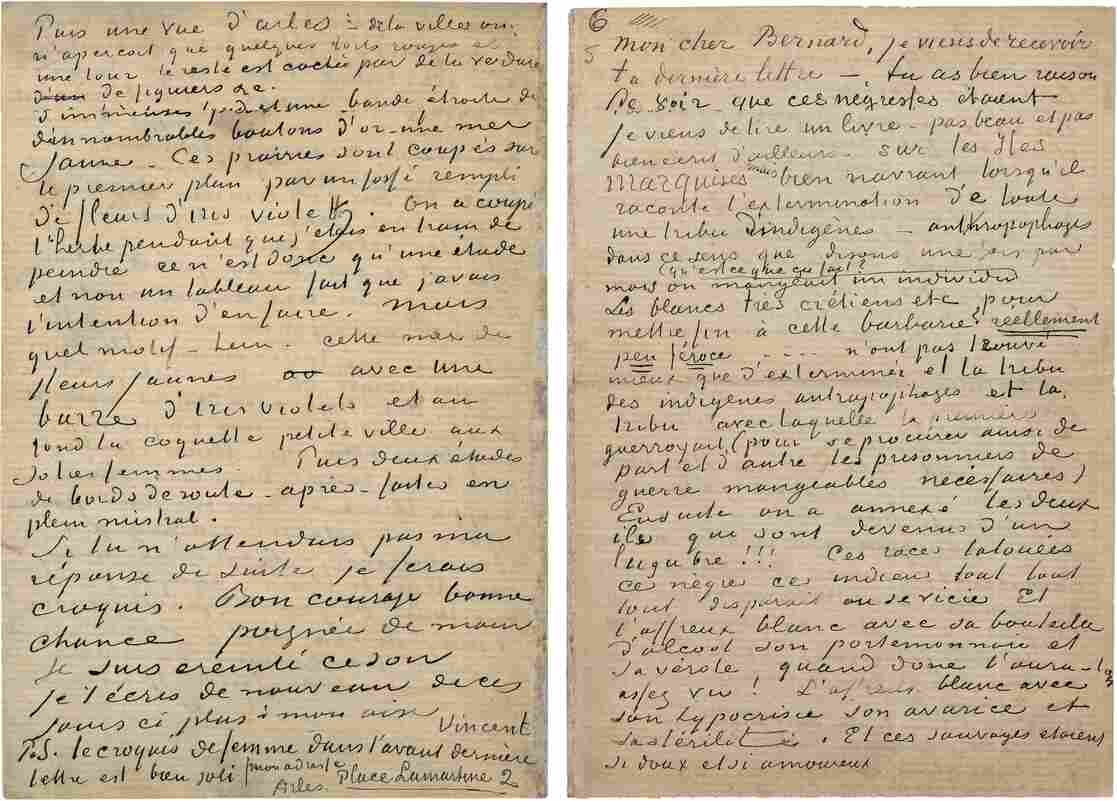 Puis une vue d'arles - de la ville on
n'aperçoit que quelques toits rouges et
une tour le reste est cachée par de la verdure
de figuiers &c.
et une bande étroite de
d'innombrables boutons d'or - une mer
jaune - Ces prairies sont coupés sur
le premier plan par un fossé rempli
de fleurs d'iris violets. On a coupé
l'herbe pendant que j'étais en train de
peindre ce n'est donc qu'une étude
et non un tableau fait que j'avais
l'intention d'en faire. mais
quel motif - hein - cette mer de
fleurs jaunes avec une
barre d'iris violets et au
fond la coquette petite ville aux
jolies femmes. Puis deux études
de bords de route - après - faites en
plein mistral.
Si tu n'attendais pas ma
réponse de suite je ferais
croquis. Bon courage bonne
chance poignée de main
Je suis ereinté ce soir
je t'écris de nouveau de ces
jours ci plus à mon aise
Vincent
P.S. le croquis de femme dans l'avant dernière
lettre est bien joli
mon adresse
Arles. Place Lamartine 2
6
5
mon cher Bernard, je viens de recevoir
ta dernière lettre -. tu as bien raison
de voir que ces négresses étaient
Je viens de lire un livre - pas beau et pas
bien ecrit d'ailleurs - sur les Iles
Marquises mais bien navrant lorsqu'il
raconte l'extermination de toute
une tribu d'indigènes - anthropophages
dans ce sens que disons une fois par
mois on mangeait un individu
(qu'est ce que ça fait?
Les blancs très crétiens etc pour
mettre fin à cette barbarie? réellement
peu féroce .... n'ont pas trouvé
mieux que d'exterminer et la tribu
des indigènes antropophages et la
tribu avec laquelle la première
guerroyait (pour se procurer ainsi de
part et d'autre les prisonniers de
guerre mangeables nécéssaires)
Ensuite on a annexé les deux
iles qui sont devenus d'un
lugubre!!! Ces races tatouées
ce nègre ces indiens tout tout
tout disparait ou se vicie Et
l'affreux blanc avec sa bouteille
d'alcool son portemonnaie et
sa vérole quand donc l'aura-t-on
assez vu! L'affreux blanc avec
son hypocrisie son avarice et
sa stérilité. Et ces sauvages etaient
si doux et si amoureux